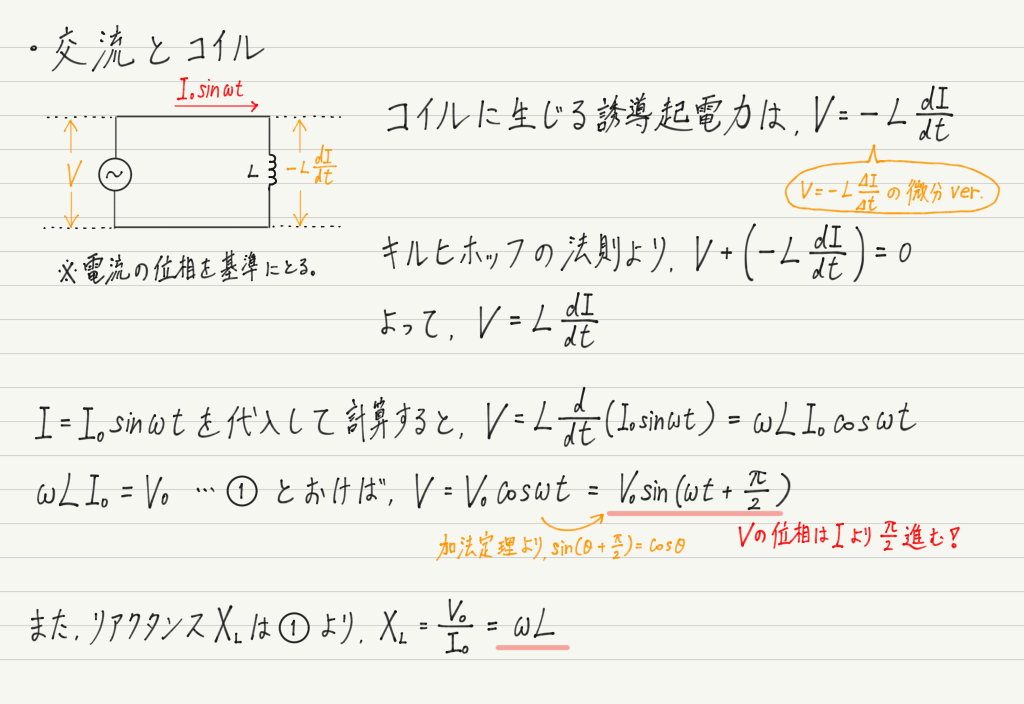 ・交流とコイル
I₀sinωt
コイルに生じる誘導起電力は, V = -L dI/dt
V
L
-L dI/dt
V = -L ΔI/Δt の微分ver.
※電流の位相を基準にとる。
キルヒホッフの法則より, V + (-L dI/dt) = 0
よって, V = L dI/dt
I = I₀sinωt を代入して計算すると, V = L d/dt (I₀sinωt) = ωLI₀cosωt
ωLI₀ = V₀ … ① とおけば, V = V₀cosωt = V₀sin(ωt + π/2)
加法定理より, sin(θ + π/2) = cosθ
Vの位相はIより π/2 進む!
また, リアクタンス X_L は ① より, X_L = V₀/I₀ = ωL